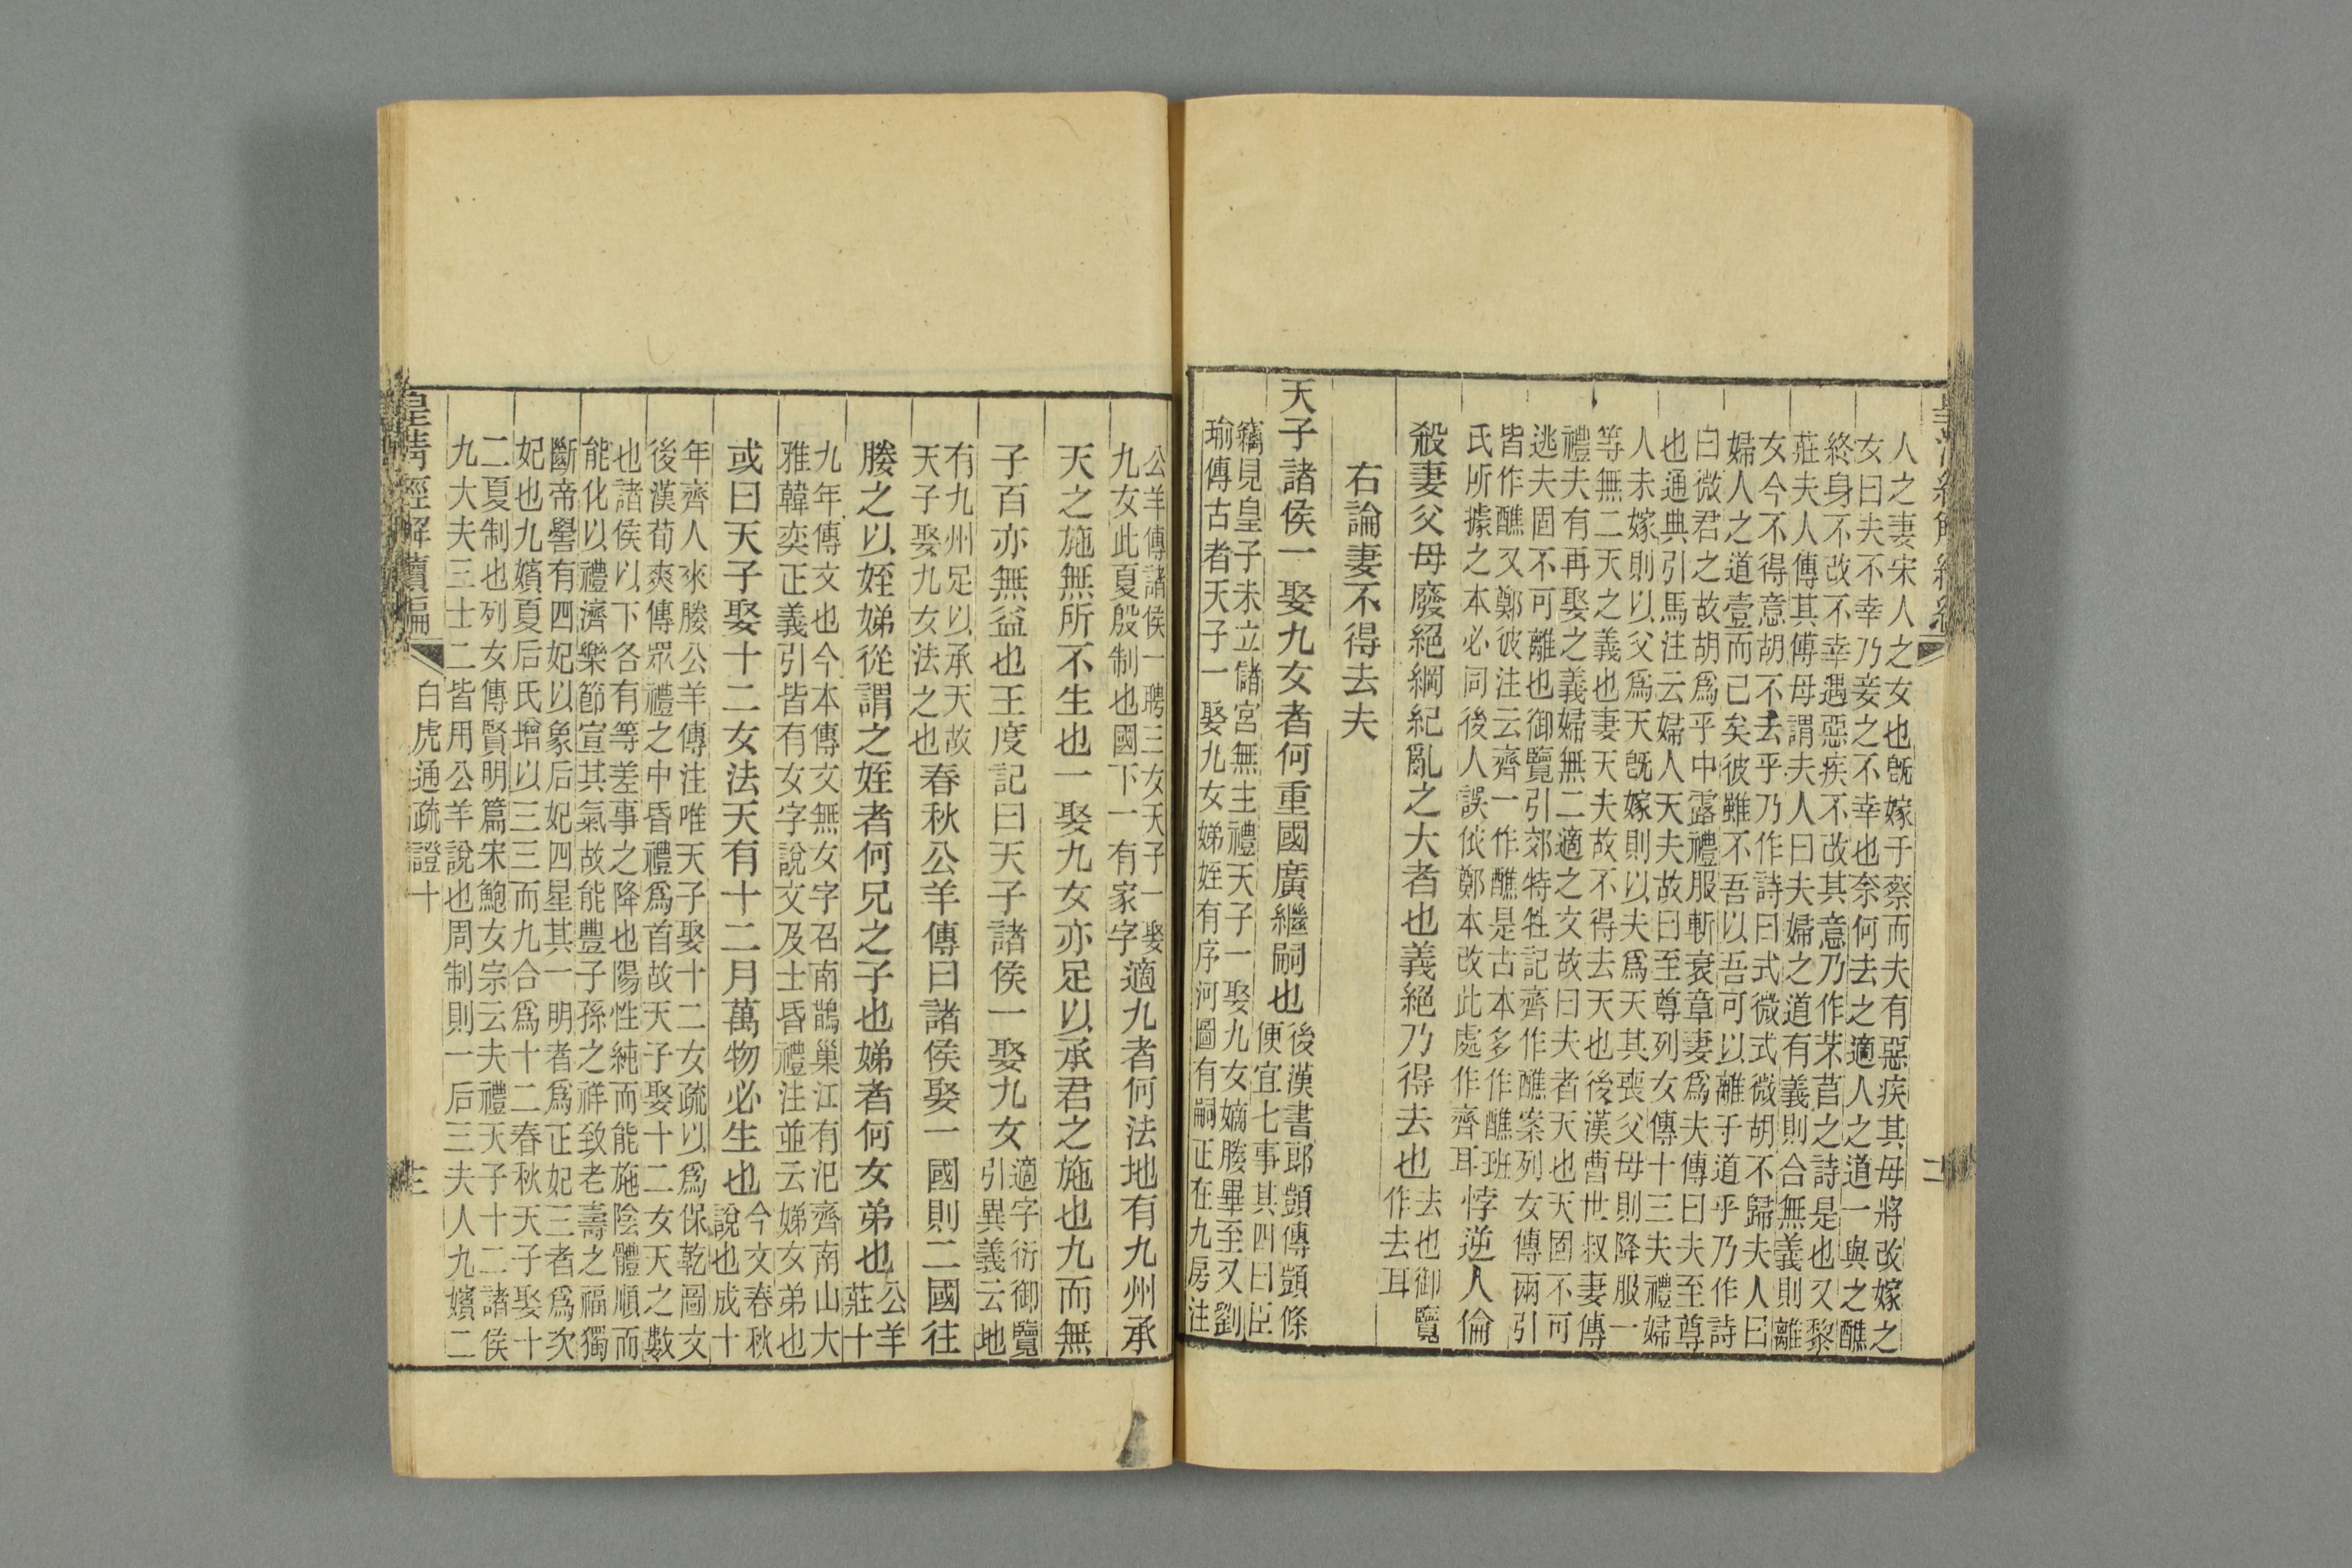 人之妻宋人之女也旣嫁于蔡而夫有惡疾其母將改嫁之
女曰夫不幸乃妾之不幸也奈何去之適人之道一與之醮
終身不改不幸遇惡疾不改其意乃作芣苢之詩是也又黎
莊夫人傳其傳母謂夫人曰夫婦之道有義則合無義則離
女今不得意胡不去乎乃作詩曰式微式微胡不歸夫人曰
婦人之道壹而已矣彼雖不吾以吾可以離于道乎乃作詩
曰微君之故胡爲乎中露禮服斬衰章妻爲夫傳曰夫至尊
也通典引馬注云婦人天夫故曰至尊列女傳十三夫禮婦
人未嫁則以父爲天旣嫁則以夫爲天其喪父母則降服一
等無二天之義也妻天夫故不得去天也後漢曹世叔妻傳
禮夫有再娶之義婦無二適之文故曰夫者天也天固不可
逃夫固不可離也御覽引郊特牲記齊作醮案列女傳兩引
皆作醮又鄭彼注云齊一作醮是古本多作醮班
氏所據之本必同後人誤依鄭本改此處作齊耳悖逆人倫
殺妻父母廢絕綱紀亂之大者也義絕乃得去也去也御覽
作去耳
右論妻不得去夫
天子諸侯一娶九女者何重國廣繼嗣也後漢書郎顗傳顗條
便宜七事其四曰臣
竊見皇子未立儲宮無主禮天子一娶九女嫡媵畢至又劉
瑜傳古者天子一娶九女娣姪有序河圖有嗣正在九房注
公羊傳諸侯一聘三女天子一娶
九女此夏殷制也國下一有家字適九者何法地有九州承
天之施無所不生也一娶九女亦足以承君之施也九而無
子百亦無益也王度記曰天子諸侯一娶九女適字衍御覽
引異義云地
有九州足以承天故
天子娶九女法之也春秋公羊傳曰諸侯娶一國則二國往
媵之以姪娣從謂之姪者何兄之子也娣者何女弟也公羊
莊十
九年傳文也今本傳文無女字召南鵲巢江有汜齊南山大
雅韓奕正義引皆有女字說文及士昏禮注並云娣女弟也
或曰天子娶十二女法天有十二月萬物必生也今文春秋
說也成十
年齊人來媵公羊傳注唯天子娶十二女疏以爲保乾圖文
後漢荀爽傳眾禮之中昏禮爲首故天子娶十二女天之數
也諸侯以下各有等差事之降也陽性純而能施陰體順而
能化以禮濟樂節宣其氣故能豐子孫之祥致老壽之福獨
斷帝嚳有四妃以象后妃四星其一明者爲正妃三者爲次
妃也九嬪夏后氏增以三三而九合爲十二春秋天子娶十
二夏制也列女傳賢明篇宋鮑女宗云夫禮天子十二諸侯
九大夫三士二皆用公羊說也周制則一后三夫人九嬪二
皇清經解續編
白虎通疏證十